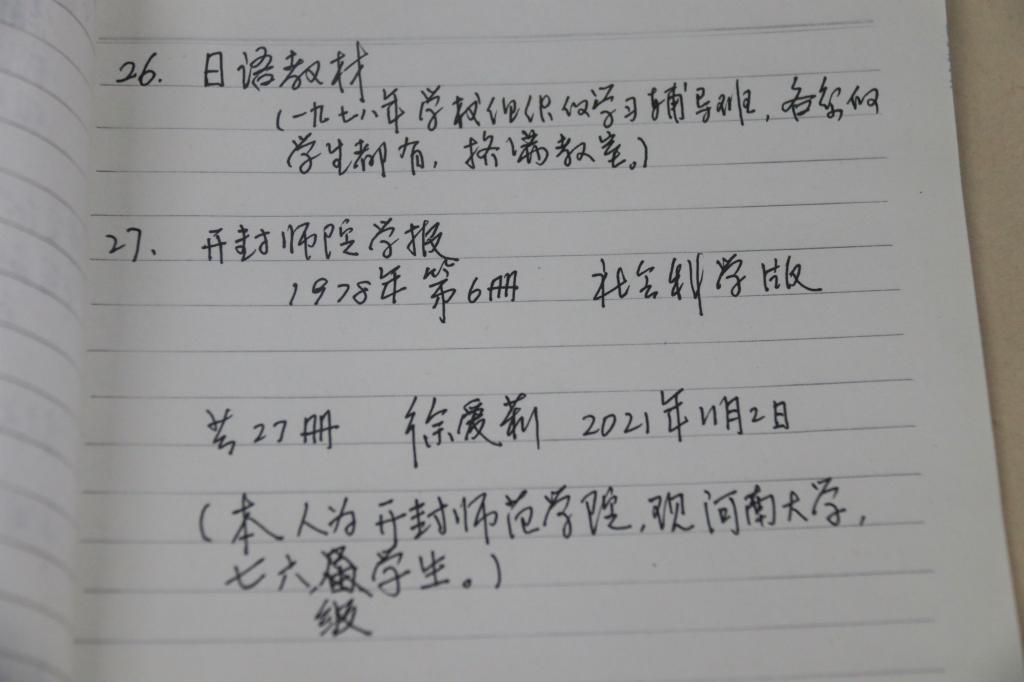 26. 日语教材
(一九七八年学校组织的学习辅导班,各系的
学生都有,挤满教室。)
27. 开封师院学报
1978年第6册 社会科学版
共27册 徐爱莉 2021年11月2日
(本人为开封师范学院,现河南大学,
七六届学生。)
级